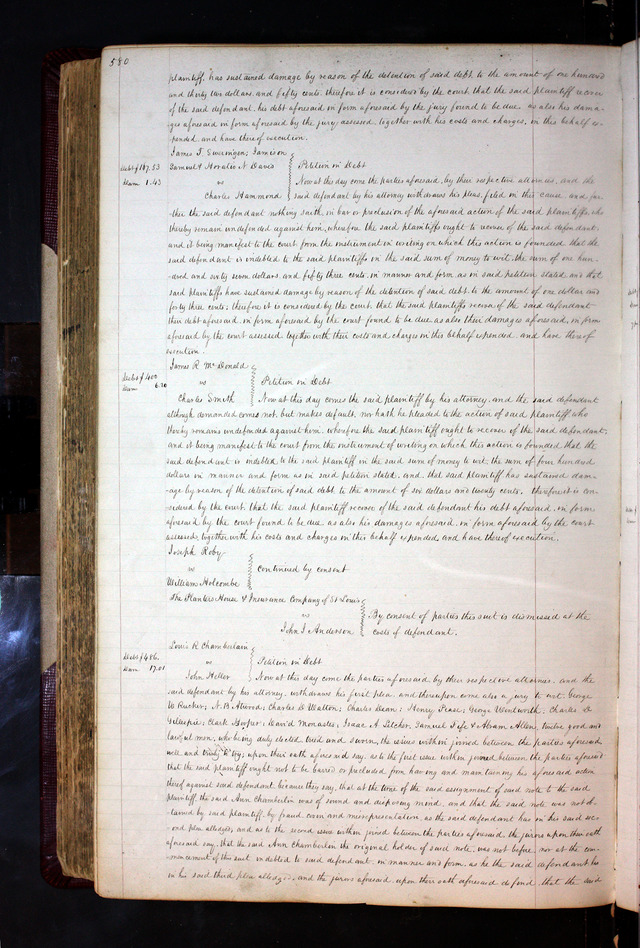 580
plaintiff, has sustained damage by reason of the detention of said debt, to the amount of one hundred
and thirty two dollars, and fifty cents, therefore it is considered by the court that the said plaintiff recover
of the said defendant, his debt aforesaid in form aforesaid by the jury found to be due as also his dama-
ges aforesaid in form aforesaid by the jury assessed, together with his costs and charges, in this behalf ex-
pended and have thereof execution.
James T. Swearingen; Jamison
Debt $167.53 Samuel & Horatio N Davis Petition in Debt
Dam 1.43 vs Now at this day come the parties aforesaid, by their respective attornies, and the
Charles Hammond said defendant by his attorney withdraws his pleas, filed in this cause and fur-
ther the said defendant nothing saith in bar or preclusion of the aforesaid action of the said plaintiffs, who
thereby remain undefended against him, wherefore the said plaintiffs ought to recover of the said defendant.
and it being manifest to the court from the instrument in writing on which this action is founded, that the
said defendant is indebted to the said plaintiffs in the said sum of money to wit, the sum of one hun-
-dred and sixty seven dollars and fifty three cents, in manner and form as in said petition stated, and that
said plaintiffs have sustained damage by reason of the detention of said debt, to the amount of one dollar and
forty three cents; therefore it is considered by the court, that the said plaintiffs recover of the said defendant
their debt aforesaid, in form aforesaid by the court found to be due, as also their damages aforesaid, in form
aforesaid by the court assessed, together with their costs and charges in this behalf expended and have thereof
execution.
James R McDonald
Debt $400 vs Petition in Debt
Dam 6.20
Charles Smith Now at this day comes the said plaintiff by his attorney, and the said defendant
although demanded comes not, but makes default, nor hath he pleaded to the action of said plaintiff who
thereby remains undefended against him, wherefore the said plaintiff ought to recover of the said defendant,
and it being manifest to the court from the instrument of writing on which this action is founded that the
said defendant is indebted to the said plaintiff in the said sum of money to wit, the sum of four hundred
dollars in manner and form as in said petition stated, and, that said plaintiff has sustained dam-
-age by reason of the detention of said debt to the amount of six dollars and twenty cents, therefore it is con-
sidered by the court, that the said plaintiff recover of the said defendant his debt aforesaid, in form
aforesaid by the court found to be due, as also his damages aforesaid, in form aforesaid by the court
assessed, together with his costs and charges in this behalf expended, and have thereof execution.
Joseph Roby
vs continued by consent
William Holcombe
The Planters House & Insurance Company of St Louis
vs By consent of parties this suit is dismissed at the
John J Anderson costs of defendant.
Louis R Chamberlain
Debt $486. vs Petition in Debt
Dam 17.01
John Heller Now at this day come the parties aforesaid by their respective attornies, and the
said defendant by his attorney withdraws his first plea, and thereupon come also a jury to wit, George
W Rucker; N. P. Atwood; Charles D Walton; Charles Dean; Henry Pease; George Wentworth; Charles D
Gillespie; Clark Hooper; David Monastes; Isaac A Letcher; Samuel Fife & Abram Allen, twelve good and
lawful men, who being duly elected tried and sworn, the issues within joined between the parties aforesaid
well and truly to try; upon their oath aforesaid say, as to the first issue within joined between the parties aforesaid
that the said plaintiff ought not to be barred or precluded from having and maintaining his aforesaid action
thereof against said defendant, because they say, that at the time of the said assignment of said note to the said
plaintiff, the said Ann Chamberlin was of sound and disposing mind, and that the said note was not ob-
-tained by said plaintiff, by fraud, covin and misrepresentation, as the said defendant has in his said sec-
-ond plea alledged; and as to the second issue within joined between the parties aforesaid, the jurors upon their oath
aforesaid say, that the said Ann Chamberlin the original holder of said note, was not before, nor at the com-
-mencement of this suit indebted to said defendant, in manner and form, as he the said defendant has
in his said third plea alledged, and the jurors aforesaid, upon their oath aforesaid do find, that the said